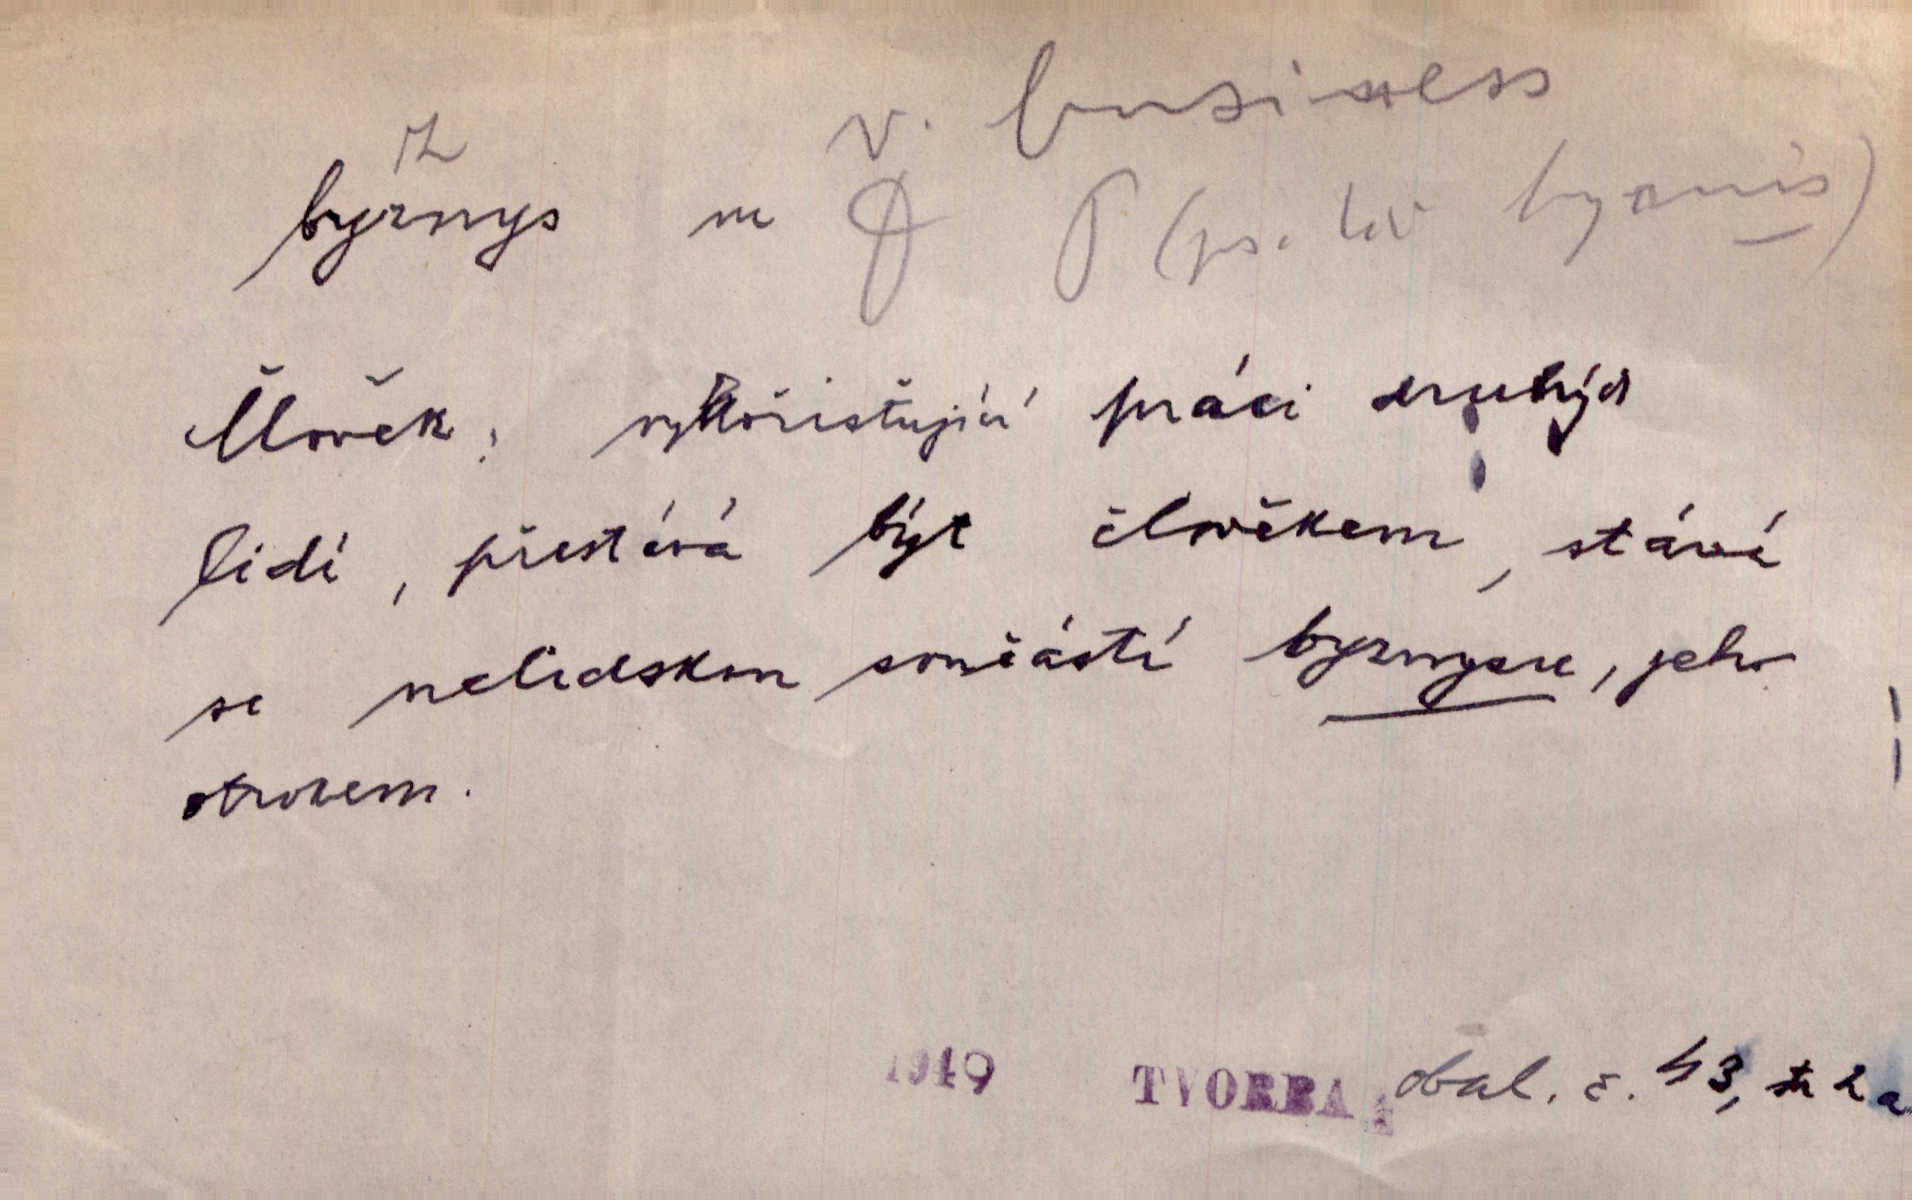 v. business
byznys m (ps. též byznis)
Člověk, vykořisťující práci druhých
lidí, přestává být člověkem, stává
se nelidskou součástí byznysu, jeho
otrokem.
1949 TVORBA obal. č. 43, str 2a